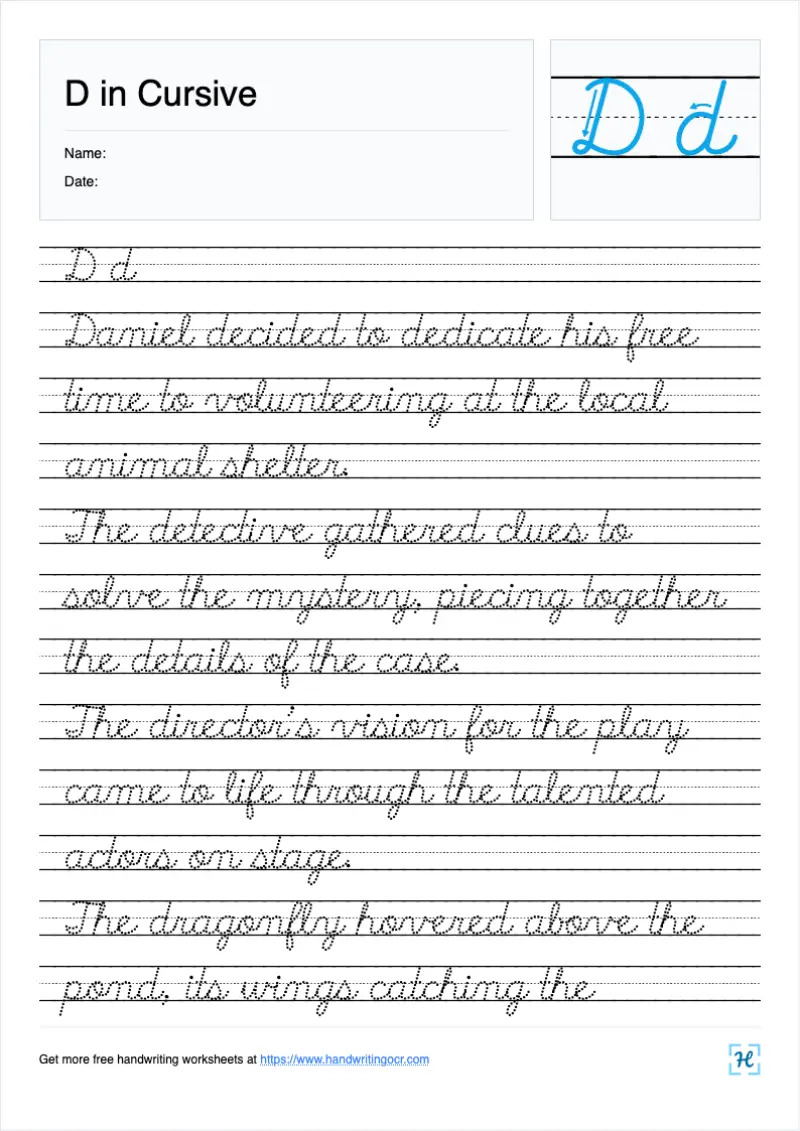 D in Cursive
Name:
Date:
D d
D d
Daniel decided to dedicate his free
time to volunteering at the local
animal shelter.
The detective gathered clues to
solve the mystery, piecing together
the details of the case.
The director's vision for the play
came to life through the talented
actors on stage.
The dragonfly hovered above the
pond, its wings catching the
Get more free handwriting worksheets at https://www.handwritingocr.com
H